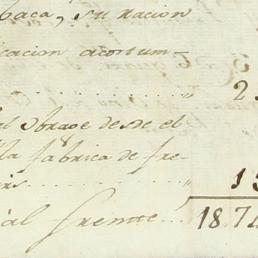 baca, su racion
cacion acostum-
........,, 2
al obrage desde el
lla fabrica de fre-
ris........,, 13
al frente 18.74